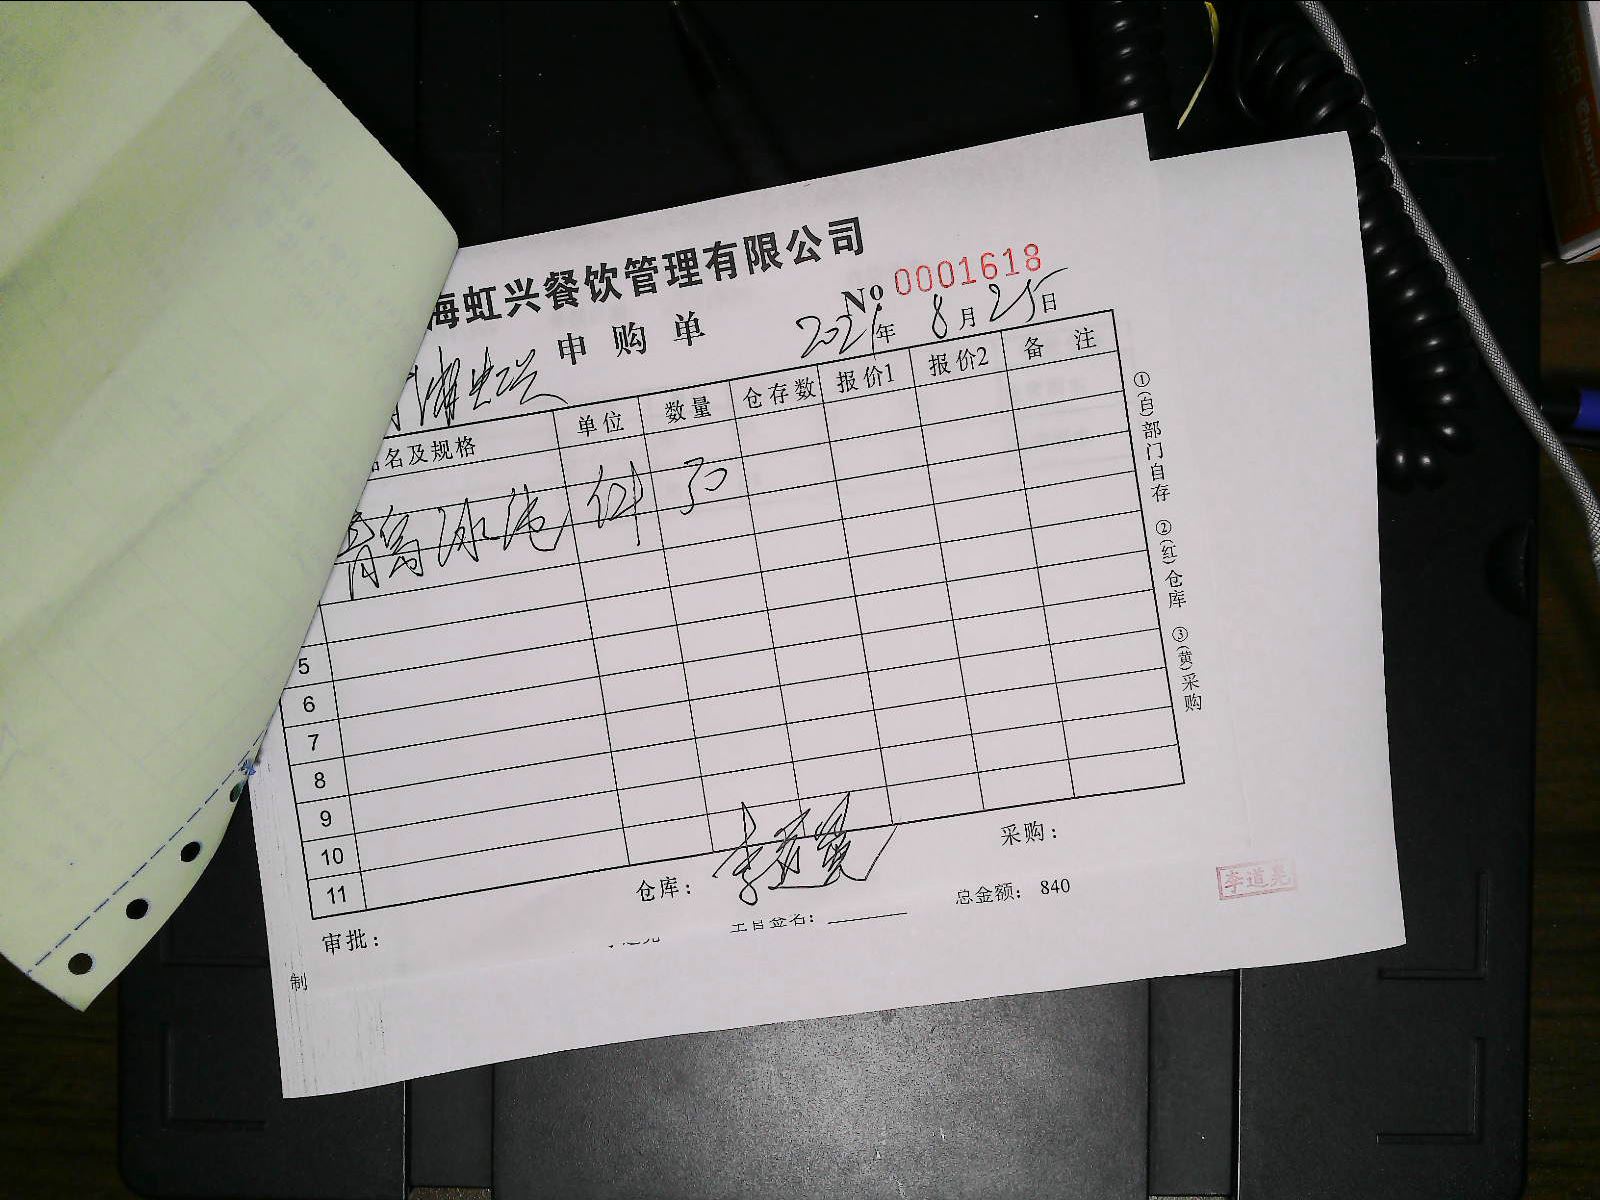 海虹兴餐饮管理有限公司
No 0001618
申购单
2021年 8月 25日
名及规格 单位 数量 仓存数 报价1 报价2 备 注
青岛冰纯 件 30
5
6
7
8
9
10
11
①(白)部门自存 ②(红)仓库 ③(黄)采购
审批: 仓库: 采购:
总金额: 840
李道亮
制